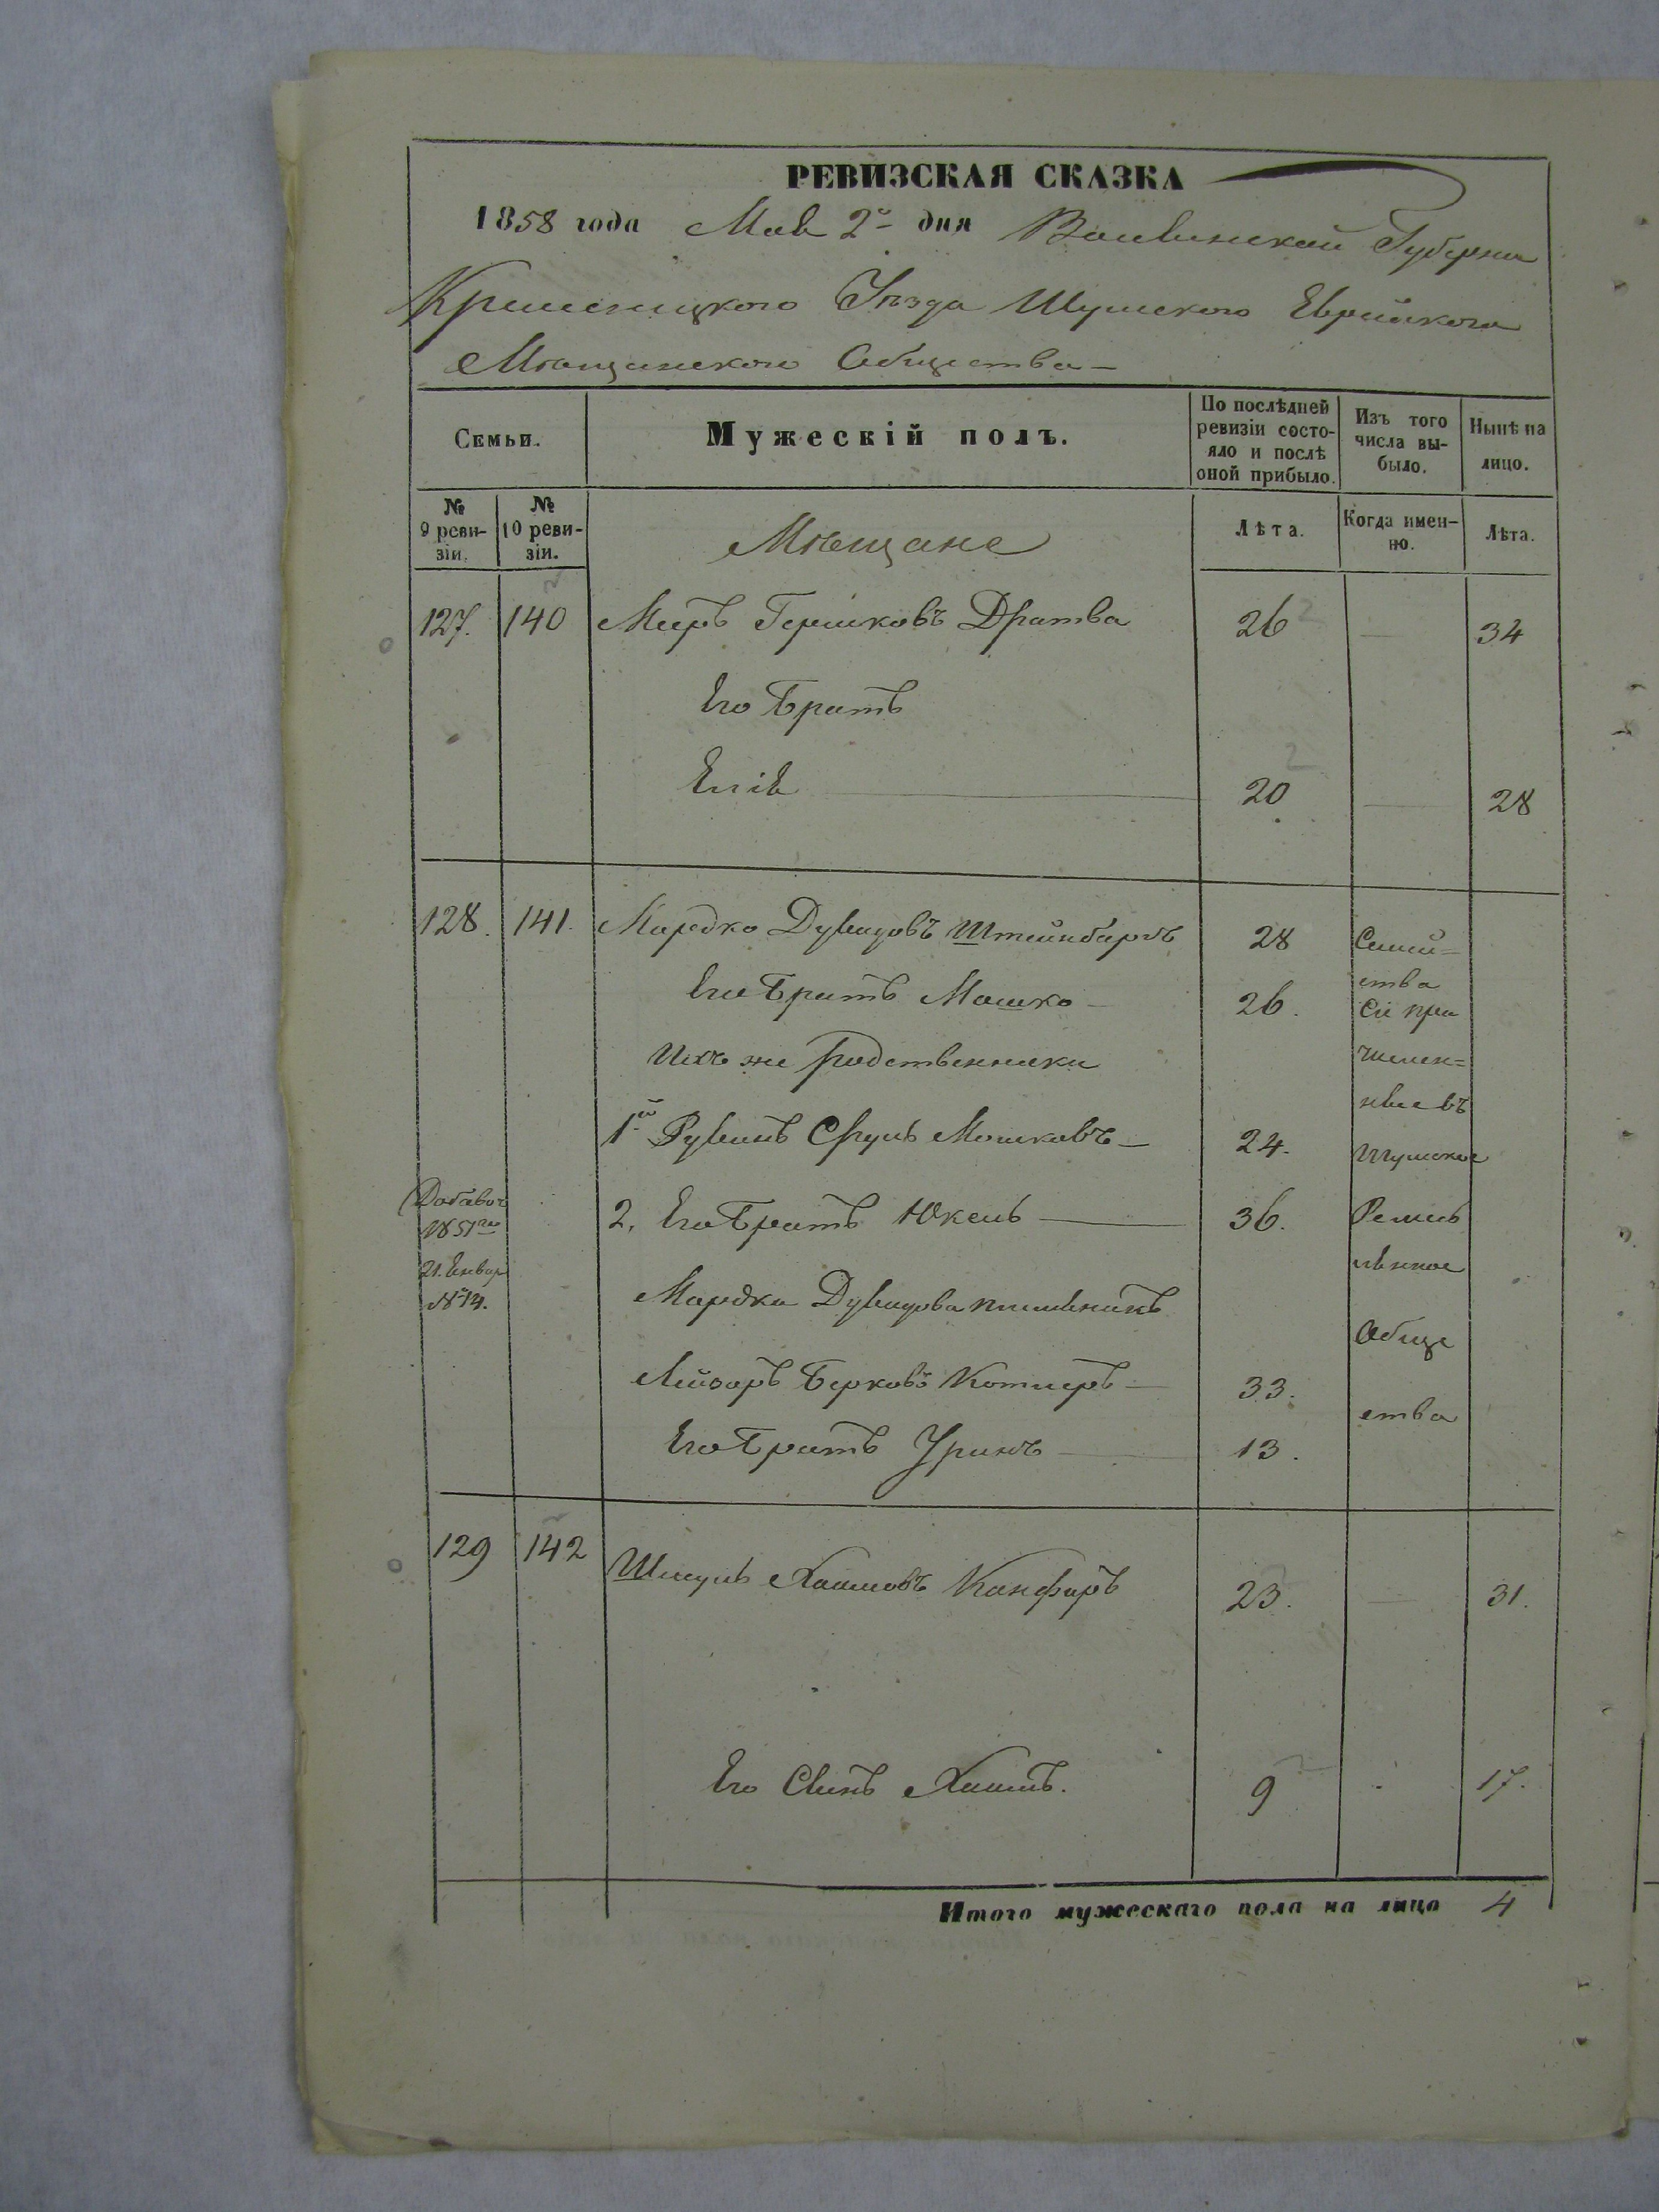 РЕВИЗСКАЯ СКАЗКА
1858 года Мая 2го дня Волынской Губерніи
Кременецкого Уѣзда Шумского Еврейского
Мѣщанского Общества
Семьи.
Мужескій полъ.
По послѣдней ревизіи состояло и послѣ оной прибыло.
Изъ того числа выбыло.
Нынѣ на лицо.
№ 9 ревизіи.
№ 10 ревизіи.
Мѣщане
Лѣта.
Когда именно.
Лѣта.
127. 140 Мееръ Гершковъ Дратва 26 — 34
Его Братъ
Елія 20 — 28
128. 141. Мордко Дувидовъ Штейнбаргъ 28
Его Братъ Мошко 26.
Ихъ же родственники
1й Рувинъ Сруль Мошковъ 24.
2. Его Братъ Юкель 36.
Мордка Дувидова племянникъ
Лейзоръ Берковъ Котляръ 33.
Его Братъ Уринъ 13.
Добавоч
1851го
21. Енвар
№ 14.
Семей-
ства
сіи при
числен-
ные въ
Шумское
Ремес
ленное
Обще
ства
129 142 Шмуль Хаимовъ Канфаръ 23. — 31.
Его Сынъ Хаимъ. 9 17.
Итого мужескаго пола на лицо 4